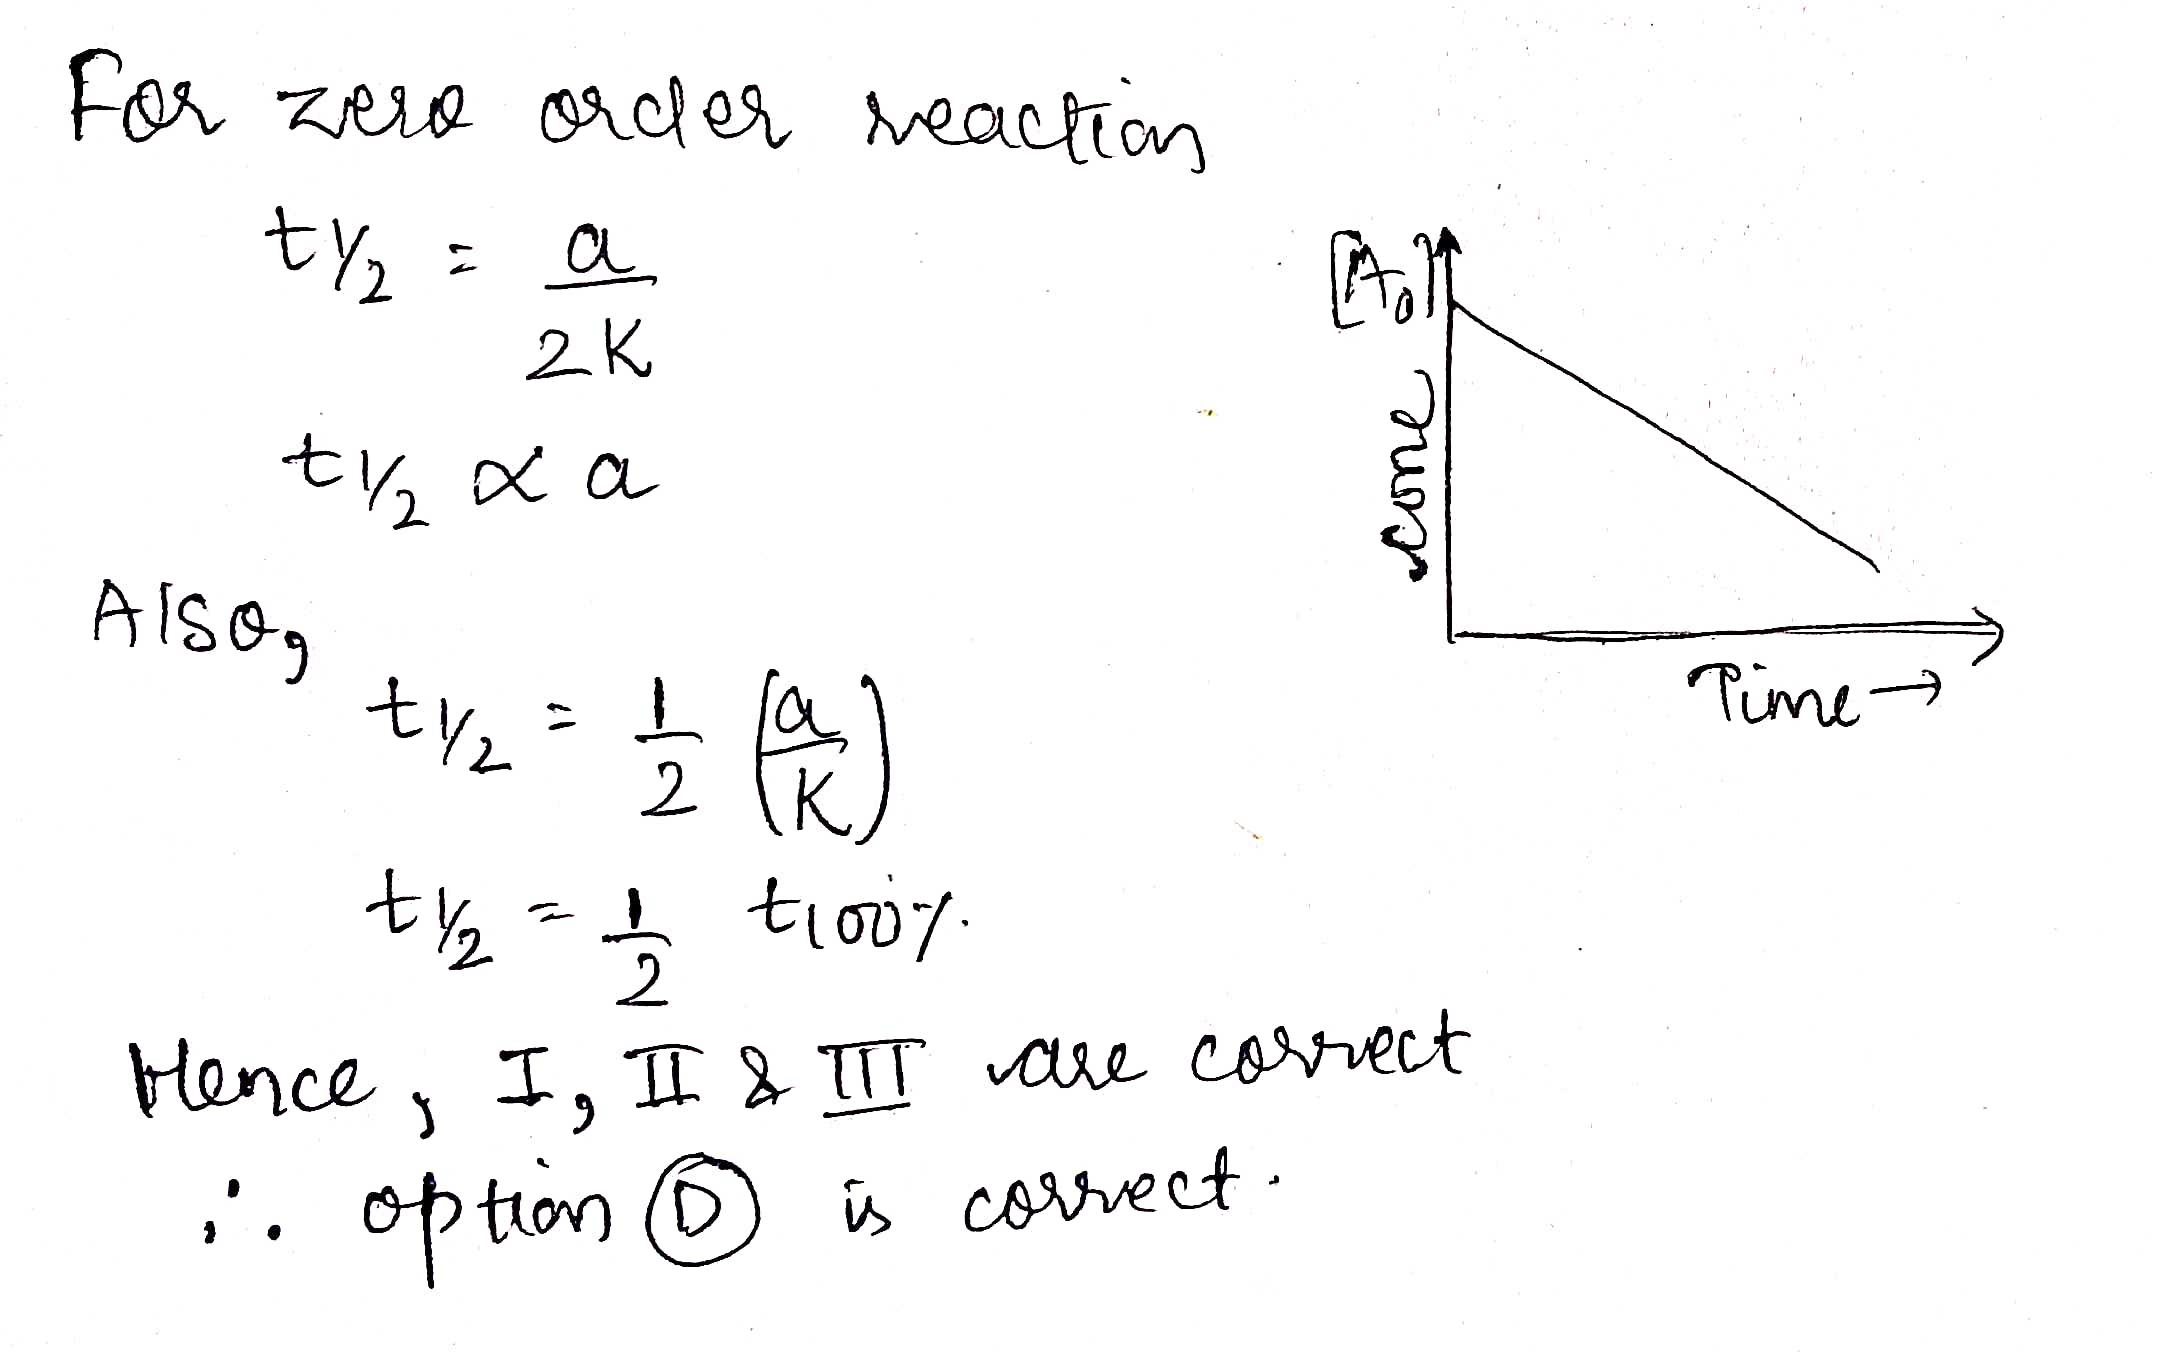 For zero order reaction
t1/2 = a/2K
t1/2 ∝ a
Also,
t1/2 = 1/2 (a/K)
t1/2 = 1/2 t100%.
Hence, I, II & III are correct
∴ option D is correct.
[A0]
conc
Time →